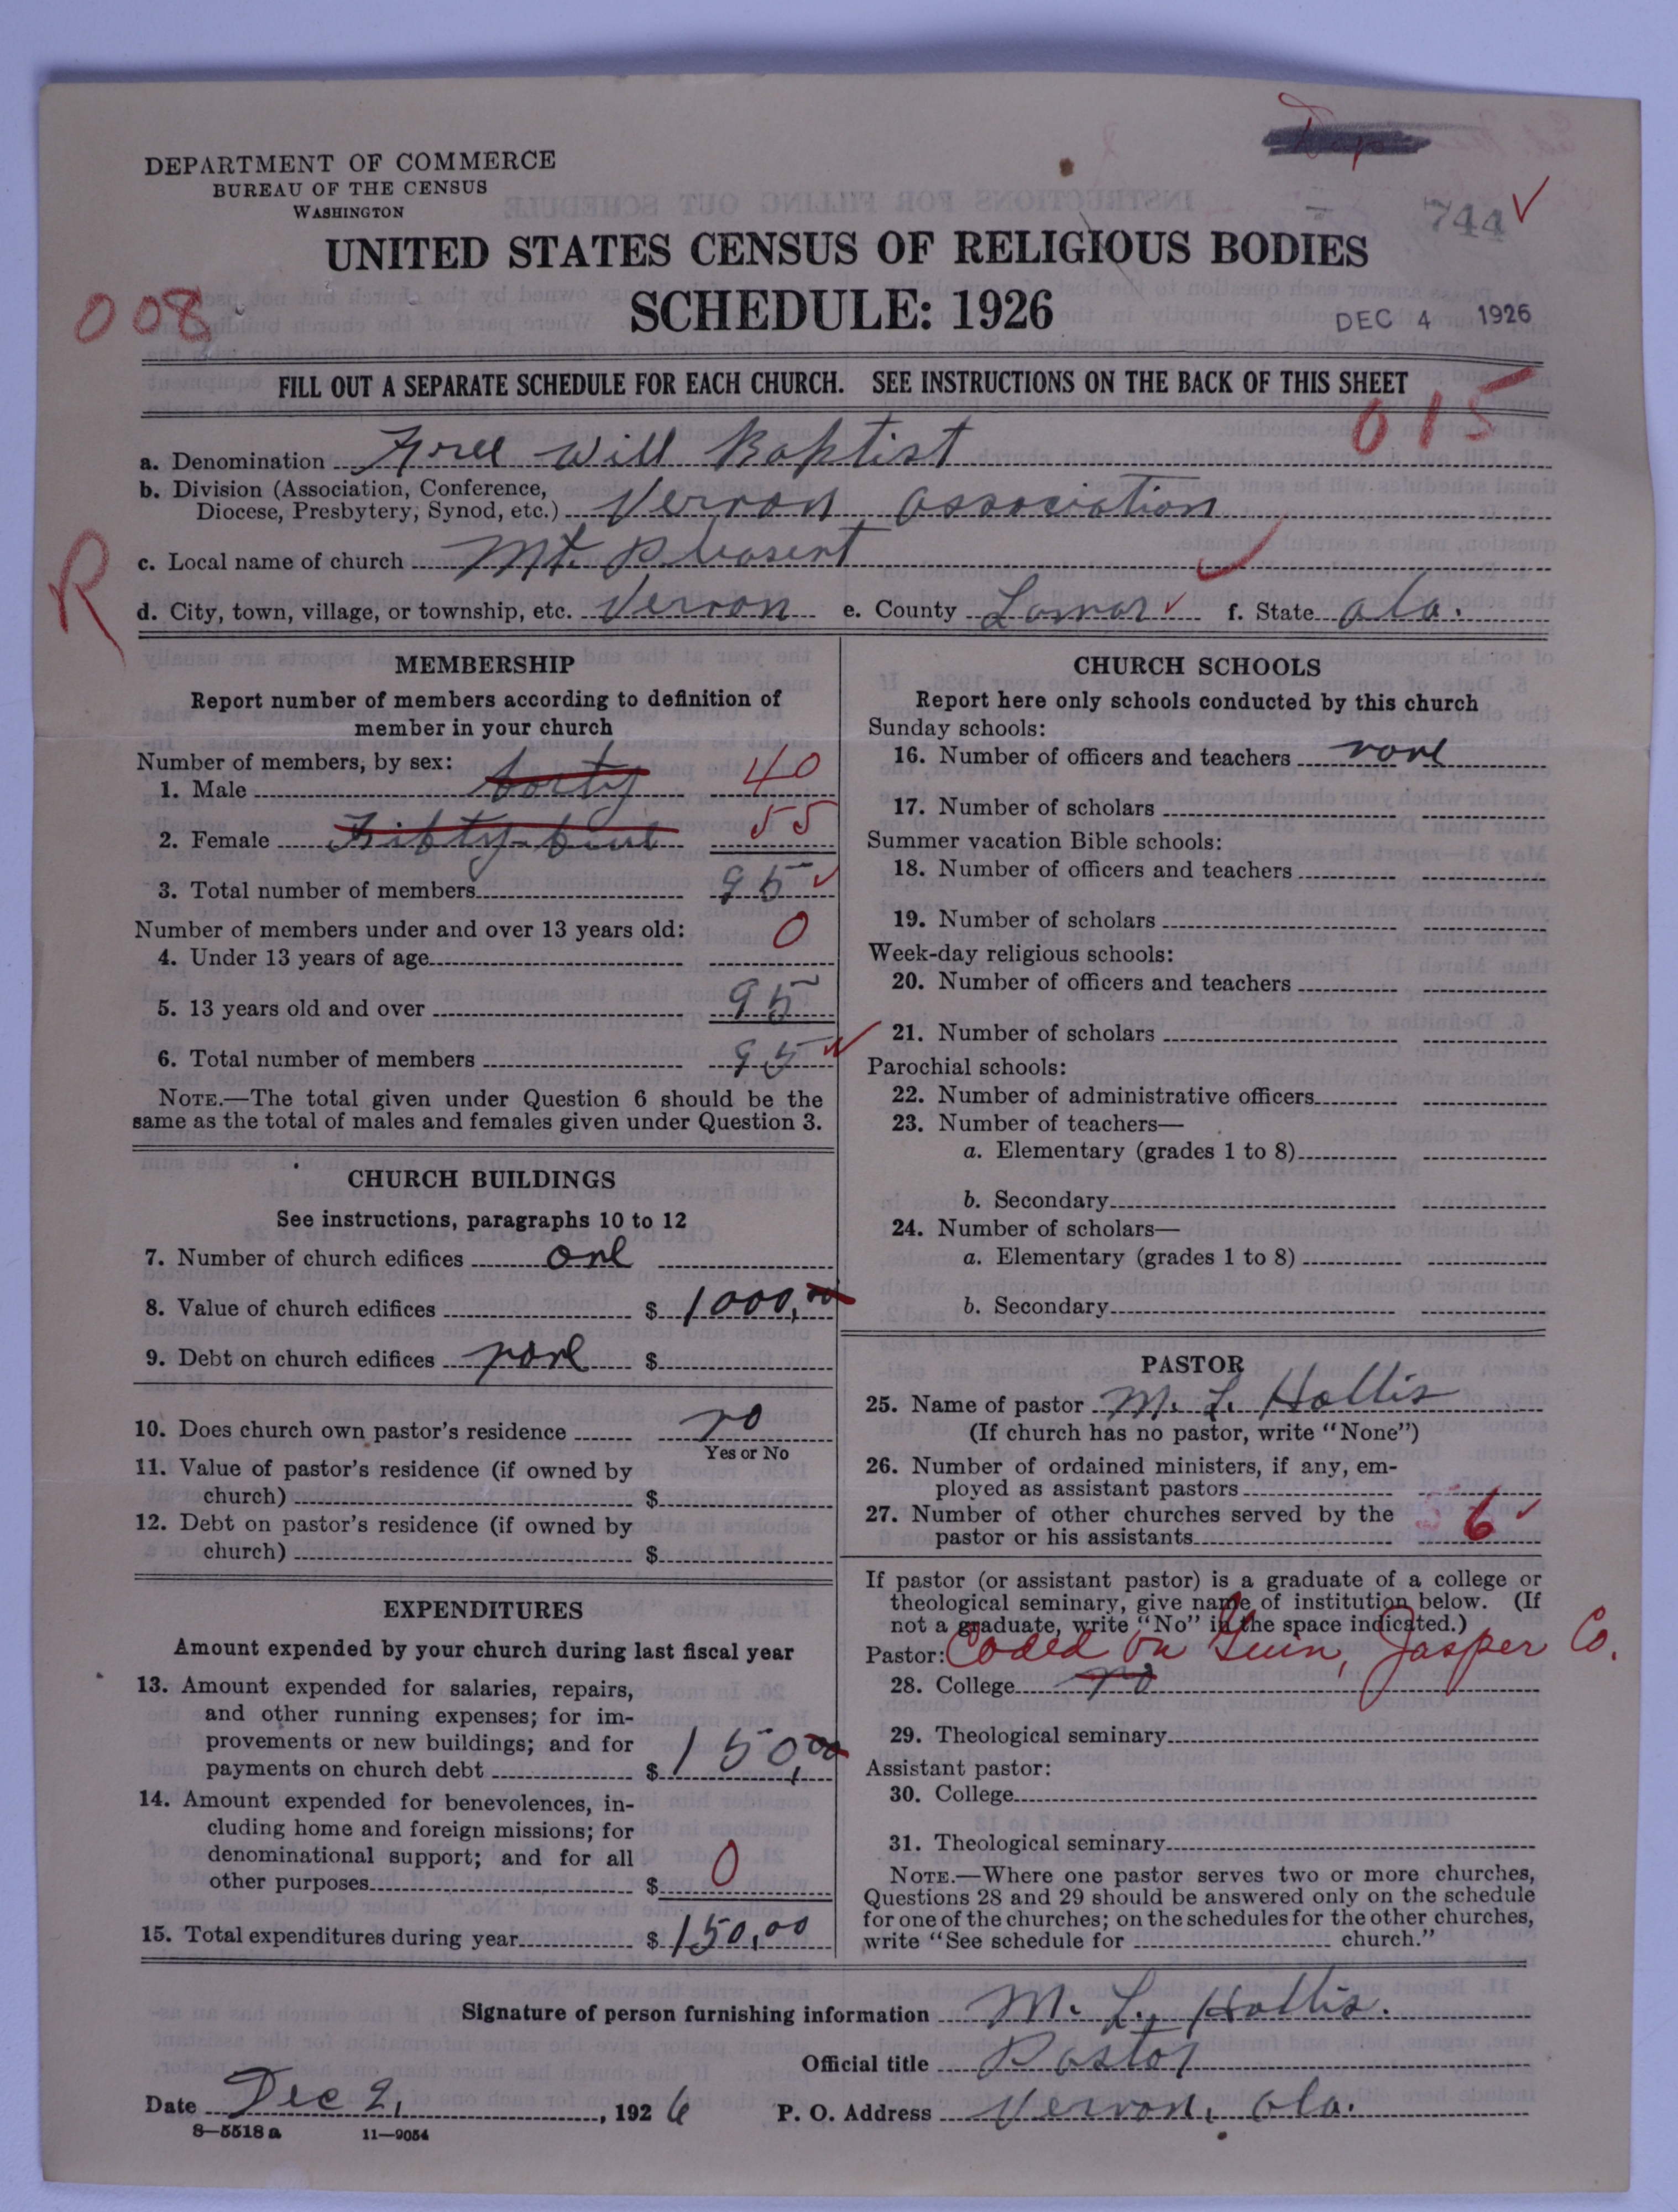 DEPARTMENT OF COMMERCE
BUREAU OF THE CENSUS
WASHINGTON
744 ✓
UNITED STATES CENSUS OF RELIGIOUS BODIES
SCHEDULE: 1926
008
DEC 4 1926
FILL OUT A SEPARATE SCHEDULE FOR EACH CHURCH. SEE INSTRUCTIONS ON THE BACK OF THIS SHEET
015
a. Denomination Free Will Baptist
b. Division (Association, Conference,
Diocese, Presbytery, Synod, etc.) Vernon association
c. Local name of church Mt. Pleasent ✓
R
d. City, town, village, or township, etc. Vernon e. County Lamar ✓ f. State ala.
MEMBERSHIP
Report number of members according to definition of
member in your church
Number of members, by sex:
1. Male forty 40
2. Female Fifty-five 55
3. Total number of members 95 ✓
Number of members under and over 13 years old:
4. Under 13 years of age 0
5. 13 years old and over 95
6. Total number of members 95 ✓
NOTE.—The total given under Question 6 should be the
same as the total of males and females given under Question 3.
CHURCH BUILDINGS
See instructions, paragraphs 10 to 12
7. Number of church edifices one
8. Value of church edifices $ 1000,00
9. Debt on church edifices none $
10. Does church own pastor's residence no
Yes or No
11. Value of pastor's residence (if owned by
church) $
12. Debt on pastor's residence (if owned by
church) $
EXPENDITURES
Amount expended by your church during last fiscal year
13. Amount expended for salaries, repairs,
and other running expenses; for im-
provements or new buildings; and for
payments on church debt $ 150,00
14. Amount expended for benevolences, in-
cluding home and foreign missions; for
denominational support; and for all
other purposes $ 0
15. Total expenditures during year $ 150,00
CHURCH SCHOOLS
Report here only schools conducted by this church
Sunday schools:
16. Number of officers and teachers none
17. Number of scholars
Summer vacation Bible schools:
18. Number of officers and teachers
19. Number of scholars
Week-day religious schools:
20. Number of officers and teachers
21. Number of scholars
Parochial schools:
22. Number of administrative officers
23. Number of teachers—
a. Elementary (grades 1 to 8)
b. Secondary
24. Number of scholars—
a. Elementary (grades 1 to 8)
b. Secondary
PASTOR
25. Name of pastor M. L. Hollis
(If church has no pastor, write "None")
26. Number of ordained ministers, if any, em-
ployed as assistant pastors
27. Number of other churches served by the
pastor or his assistants 6 ✓
If pastor (or assistant pastor) is a graduate of a college or
theological seminary, give name of institution below. (If
not a graduate, write "No" in the space indicated.)
Pastor: Coded on Guin, Jasper Co.
28. College no
29. Theological seminary
Assistant pastor:
30. College
31. Theological seminary
NOTE.—Where one pastor serves two or more churches,
Questions 28 and 29 should be answered only on the schedule
for one of the churches; on the schedules for the other churches,
write "See schedule for church."
Signature of person furnishing information M. L. Hollis.
Official title Pastor
Date Dec 2, 1926 P. O. Address Vernon, ala.
8—5518 a 11—9054